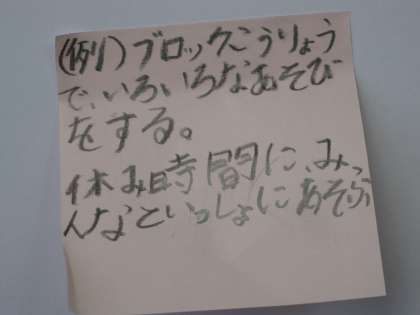 (例)ブロックこうりょう
で、いろいろなあそび
をする。
休み時間に、みっ
んなといっしょにあそぶ